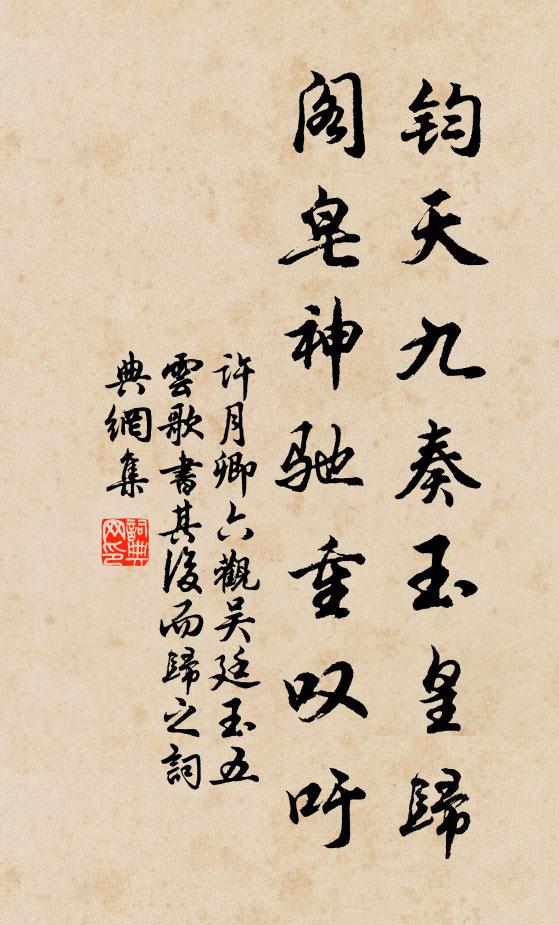 钧天九奏玉皇歸
阁皂神馳重叹吁
許月卿六觀吴廷玉五
雲歌書其後而歸之詞
典網集
詞典网印